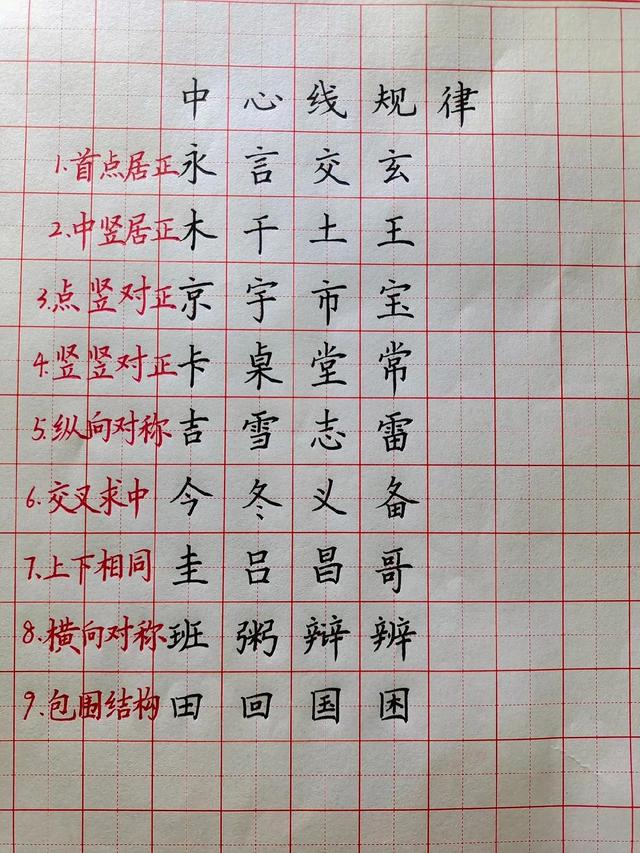 中心线规律
1.首点居正永言交玄
2.中竖居正木干土王
3.点竖对正京宇市宝
4.竖竖对正卡桌堂常
5.纵向对称吉雪志雷
6.交叉求中今冬义备
7.上下相同圭吕昌哥
8.横向对称班粥辩辨
9.包围结构田回国困